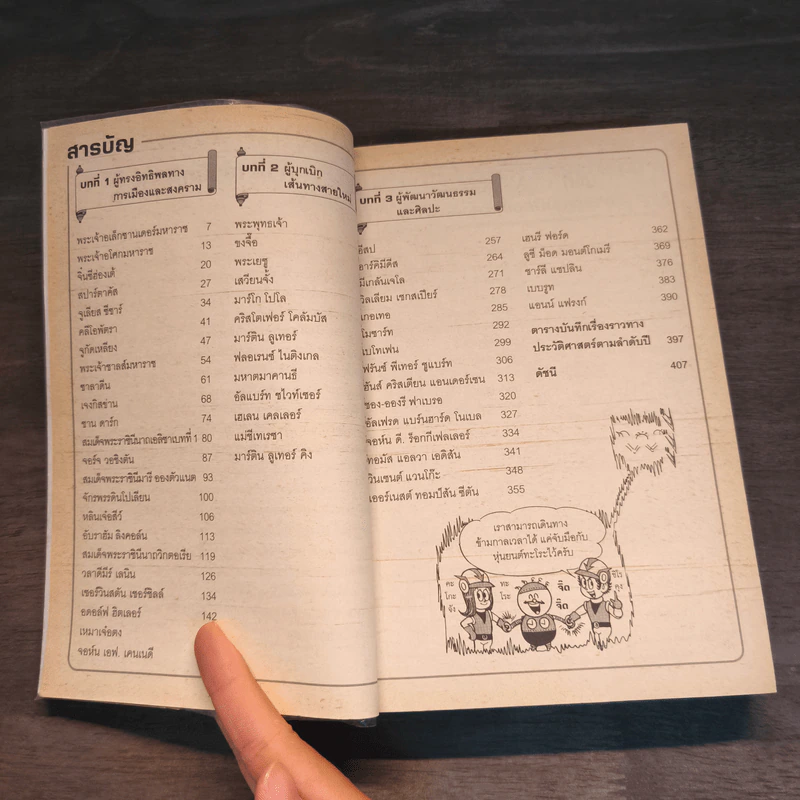 สารบัญ
บทที่ 1 ผู้ทรงอิทธิพลทาง
การเมืองและสงคราม
พระเจ้าอเล็กซานเดอร์มหาราช 7
พระเจ้าอโศกมหาราช 13
จิ๋นซีฮ่องเต้ 20
สปาร์ตาคัส 27
จูเลียส ซีซาร์ 34
คลีโอพัตรา 41
จูกัดเหลียง 47
พระเจ้าชาลส์มหาราช 54
ซาลาดีน 61
เจงกิสข่าน 68
ชาน ดาร์ก 74
สมเด็จพระราชินีนาถเอลิซาเบทที่ 1 80
จอร์จ วอชิงตัน 87
สมเด็จพระราชินีมารี อองตัวแนต 93
จักรพรรดินโปเลียน 100
หลินเจ๋อสวี์ 106
อับราฮัม ลิงคอล์น 113
สมเด็จพระราชินีนาถวิกตอเรีย 119
วลาดีมีร์ เลนิน 126
เซอร์วินสตัน เชอร์ชิลล์ 134
อดอล์ฟ ฮิตเลอร์ 142
เหมาเจ๋อตง
จอห์น เอฟ. เคนเนดี
บทที่ 2 ผู้บุกเบิก
เส้นทางสายใหม่
พระพุทธเจ้า
ขงจื๊อ
พระเยซู
เสวียนจั้ง
มาร์โก โปโล
คริสโตเฟอร์ โคลัมบัส
มาร์ติน ลูเทอร์
ฟลอเรนซ์ ไนติงเกล
มหาตมาคานธี
อัลแบร์ท ชไวท์เซอร์
เฮเลน เคลเลอร์
แม่ชีเทเรซา
มาร์ติน ลูเทอร์ คิง
บทที่ 3 ผู้พัฒนาวัฒนธรรม
และศิลปะ
อีสป 257
อาร์คิมีดีส 264
มีเกลันเจโล 271
วิลเลียม เชกสเปียร์ 278
เกอเทอ 285
โมซาร์ท 292
เบโทเฟน 299
ฟรันซ์ พีเทอร์ ชูแบร์ท 306
ฮันส์ คริสเตียน แอนเดอร์เซน 313
ซอง-อองรี ฟาเบรอ 320
อัลเฟรด แบร์นฮาร์ด โนเบล 327
จอห์น ดี. ร็อกกีเฟลเลอร์ 334
ทอมัส แอลวา เอดิสัน 341
วินเซนต์ แวนโก๊ะ 348
เออร์เนสต์ ทอมป์สัน ซีตัน 355
เฮนรี ฟอร์ด 362
ลูซี ม็อด มอนต์โกเมรี 369
ชาร์ลี แชปลิน 376
เบบรูท 383
แอนน์ แฟรงก์ 390
ตารางบันทึกเรื่องราวทาง
ประวัติศาสตร์ตามลำดับปี 397
ดัชนี 407
เราสามารถเดินทาง
ข้ามกาลเวลาได้ แค่จับมือกับ
หุ่นยนต์ทะโระไว้ครับ
คะ
โกะ
จัง
ทะ
โระ
จี๊ด
จี๊ด
ฮิโร
คุง